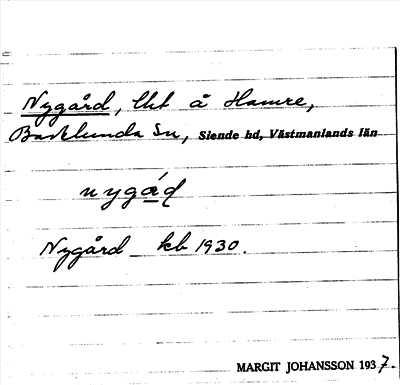 Nygård, lht å Hamre,
Badelunda Sn, Siende hd, Västmanlands län
nygǻḍ
Nygård kb 1930.
MARGIT JOHANSSON 1937.